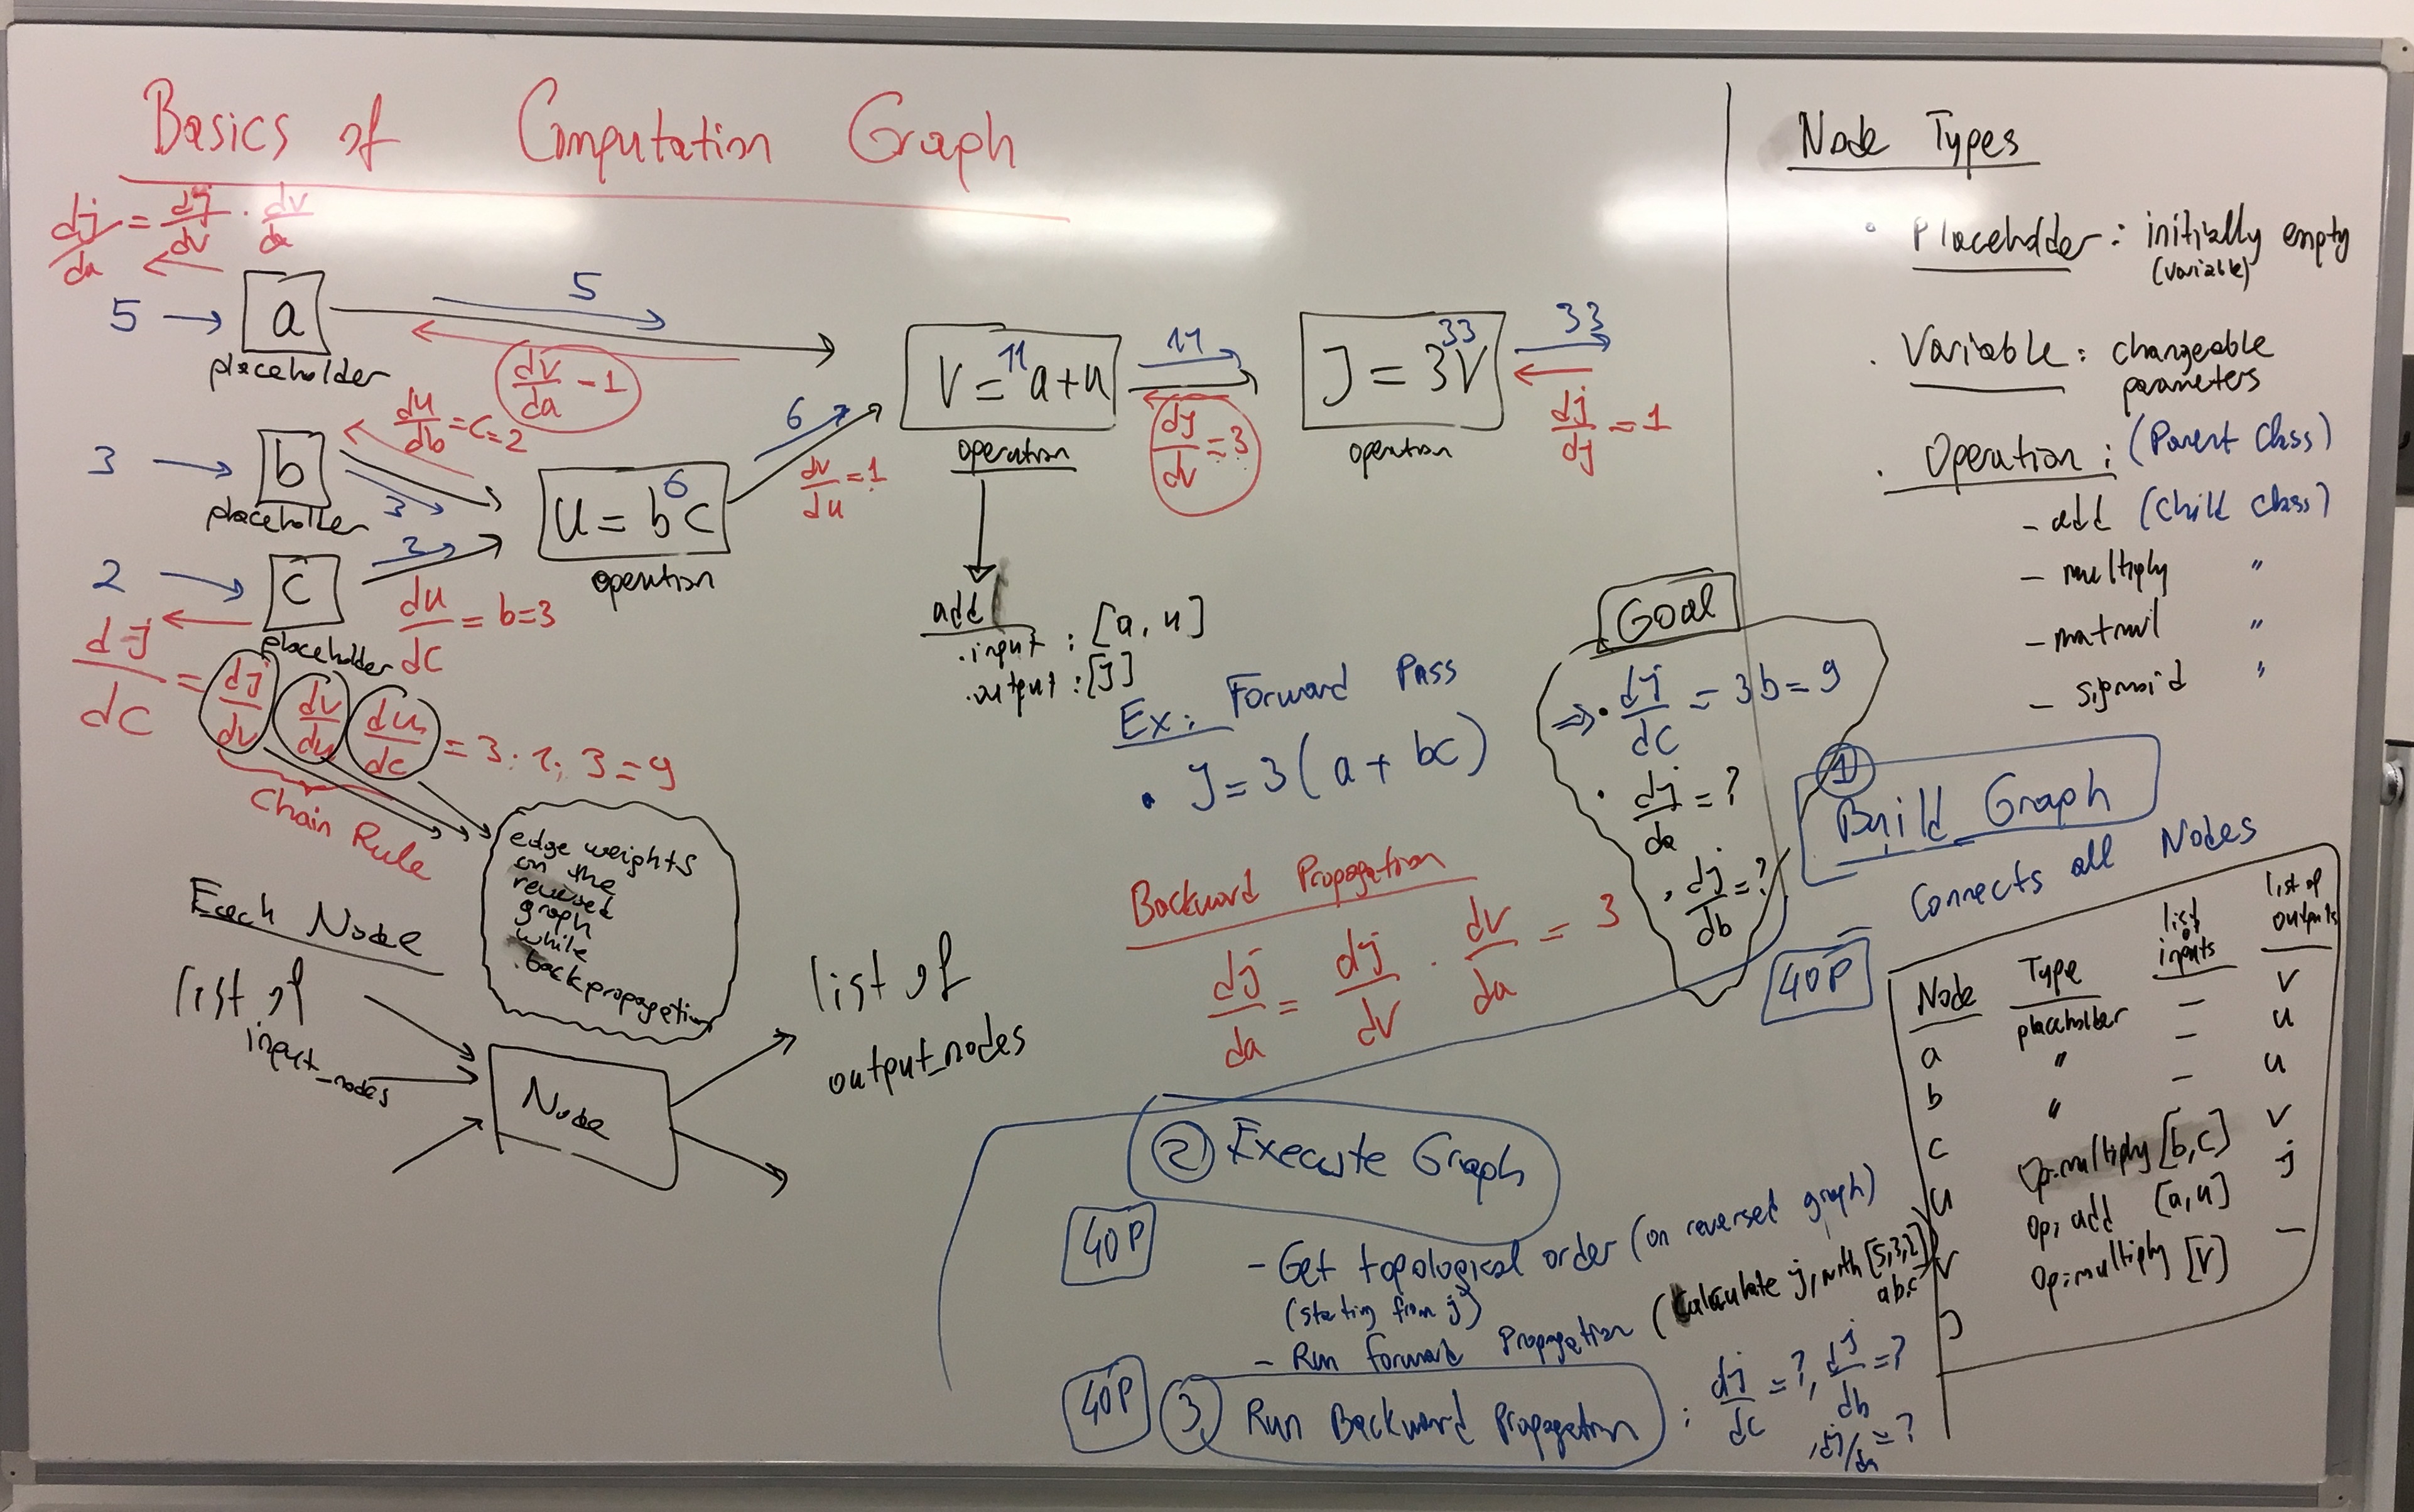 Basics of Computation Graph
dj/da = dj/dv · dv/da
5 → a
placeholder
5
dv/da - 1
3 → b
placeholder
du/db = c = 2
3
2 → c
placeholder
2
du/dc = b=3
6
u = bc
operation
6
dv/du = 1
11
V = a+u
operation
11
dj/dv = 3
33
J = 3V
operation
33
dj/dj = 1
add
.input : [a, u]
.output : [j]
dj/dc = dj/dv dv/du du/dc = 3 . 1 . 3 = 9
Chain Rule
edge weights
on the
reversed
graph
while
backpropagation
Each Node
list of
input_nodes
Node
list of
output_nodes
Ex: Forward Pass
• J = 3(a + bc)
Backward Propagation
dj/da = dj/dv · dv/da = 3
Goal
⇒ • dj/dc = 3b = 9
• dj/da = ?
• dj/db = ?
Node Types
• Placeholder : initially empty
(variable)
. Variable : changeable
parameters
. Operation : (Parent Class)
- add (Child Class)
- multiply "
- matmul "
- sigmoid "
① Build Graph
Connects all Nodes
40P
Node Type list of inputs list of outputs
a placeholder - v
b " - u
c " - u
u Op:multiply [b,c] v
v Op: add [a,u] j
J Op:multiply [v] -
② Execute Graph
40P
- Get topological order (on reversed graph)
(starting from j)
- Run forward propagation (Calculate j, with [5,3,2]
a b c
40P
③ Run Backward Propagation : dj/dc = ?, dj/db = ?
, dj/da = ?